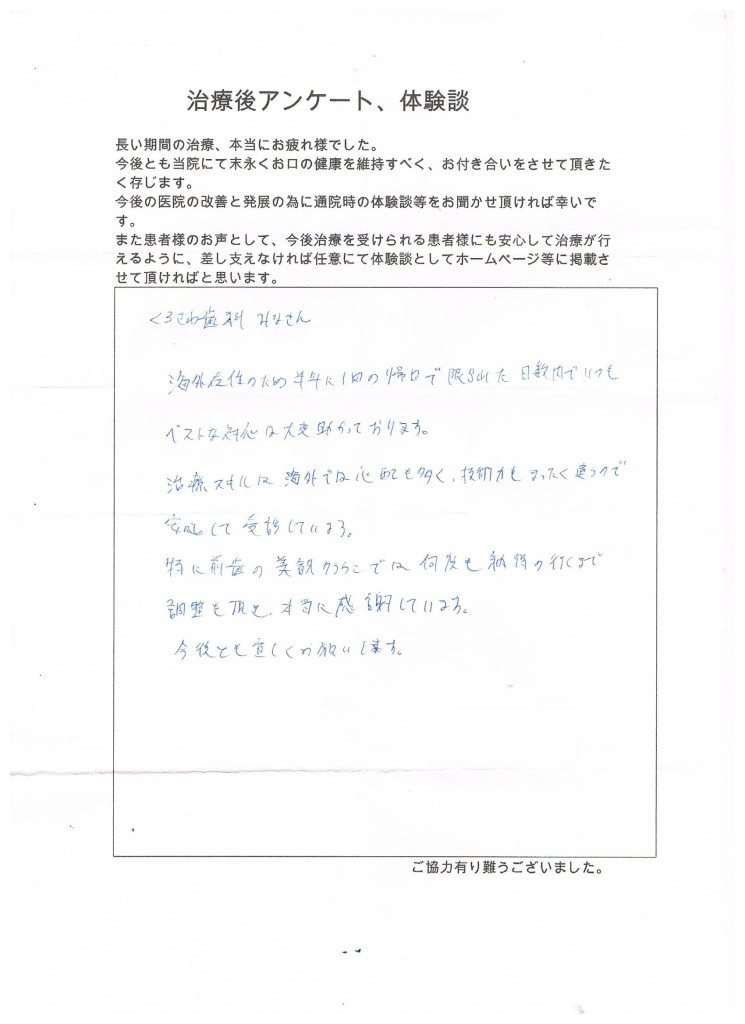 治療後アンケート、体験談
長い期間の治療、本当にお疲れ様でした。
今後とも当院にて末永くお口の健康を維持すべく、お付き合いをさせて頂きた
く存じます。
今後の医院の改善と発展の為に通院時の体験談等をお聞かせ頂ければ幸いで
す。
また患者様のお声として、今後治療を受けられる患者様にも安心して治療が行
えるように、差し支えなければ任意にて体験談としてホームページ等に掲載さ
せて頂ければと思います。
くろさわ歯科 みなさん
海外在住のため半年に1回の帰日で限られた日数内でいつも
ベストな対応は大変助かっております。
治療スキルは海外では心配も多く、技術力もまったく違うので
安心して受診しています。
特に前歯の美観 では何度も納得の行くまで
調整を頂き、本当に感謝しています。
今後とも宜しくお願いします。
ご協力有り難うございました。